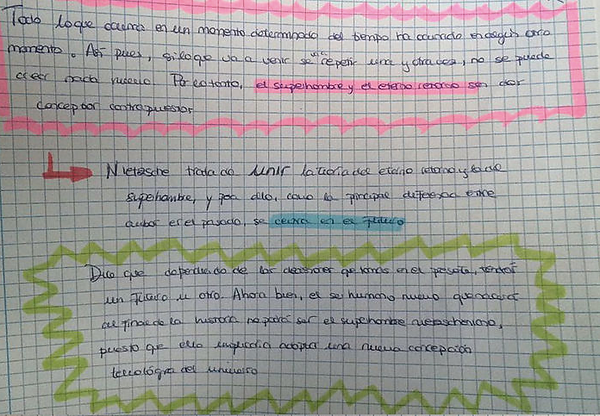 Todo lo que ocurre en un momento determinado del tiempo ha ocurrido en algún otro
momento. Así pues, si lo que va a venir se va a repetir una y otra vez, no se puede
crear nada nuevo. Por lo tanto, el superhombre y el eterno retorno son dos
conceptos contrapuestos
Nietzsche trata de unir la teoría del eterno retorno y la de
superhombre, y para ello, como la principal diferencia entre
ambos es el pasado, se centra en el futuro
Dice que dependiendo de las decisiones que tomas en el pasado, tendrás
un futuro u otro. Ahora bien, el ser humano nuevo que nacerá
al final de la historia no podrá ser el superhombre nietzscheniano,
puesto que ello implicaría adoptar una nueva concepción
teleológica del universo